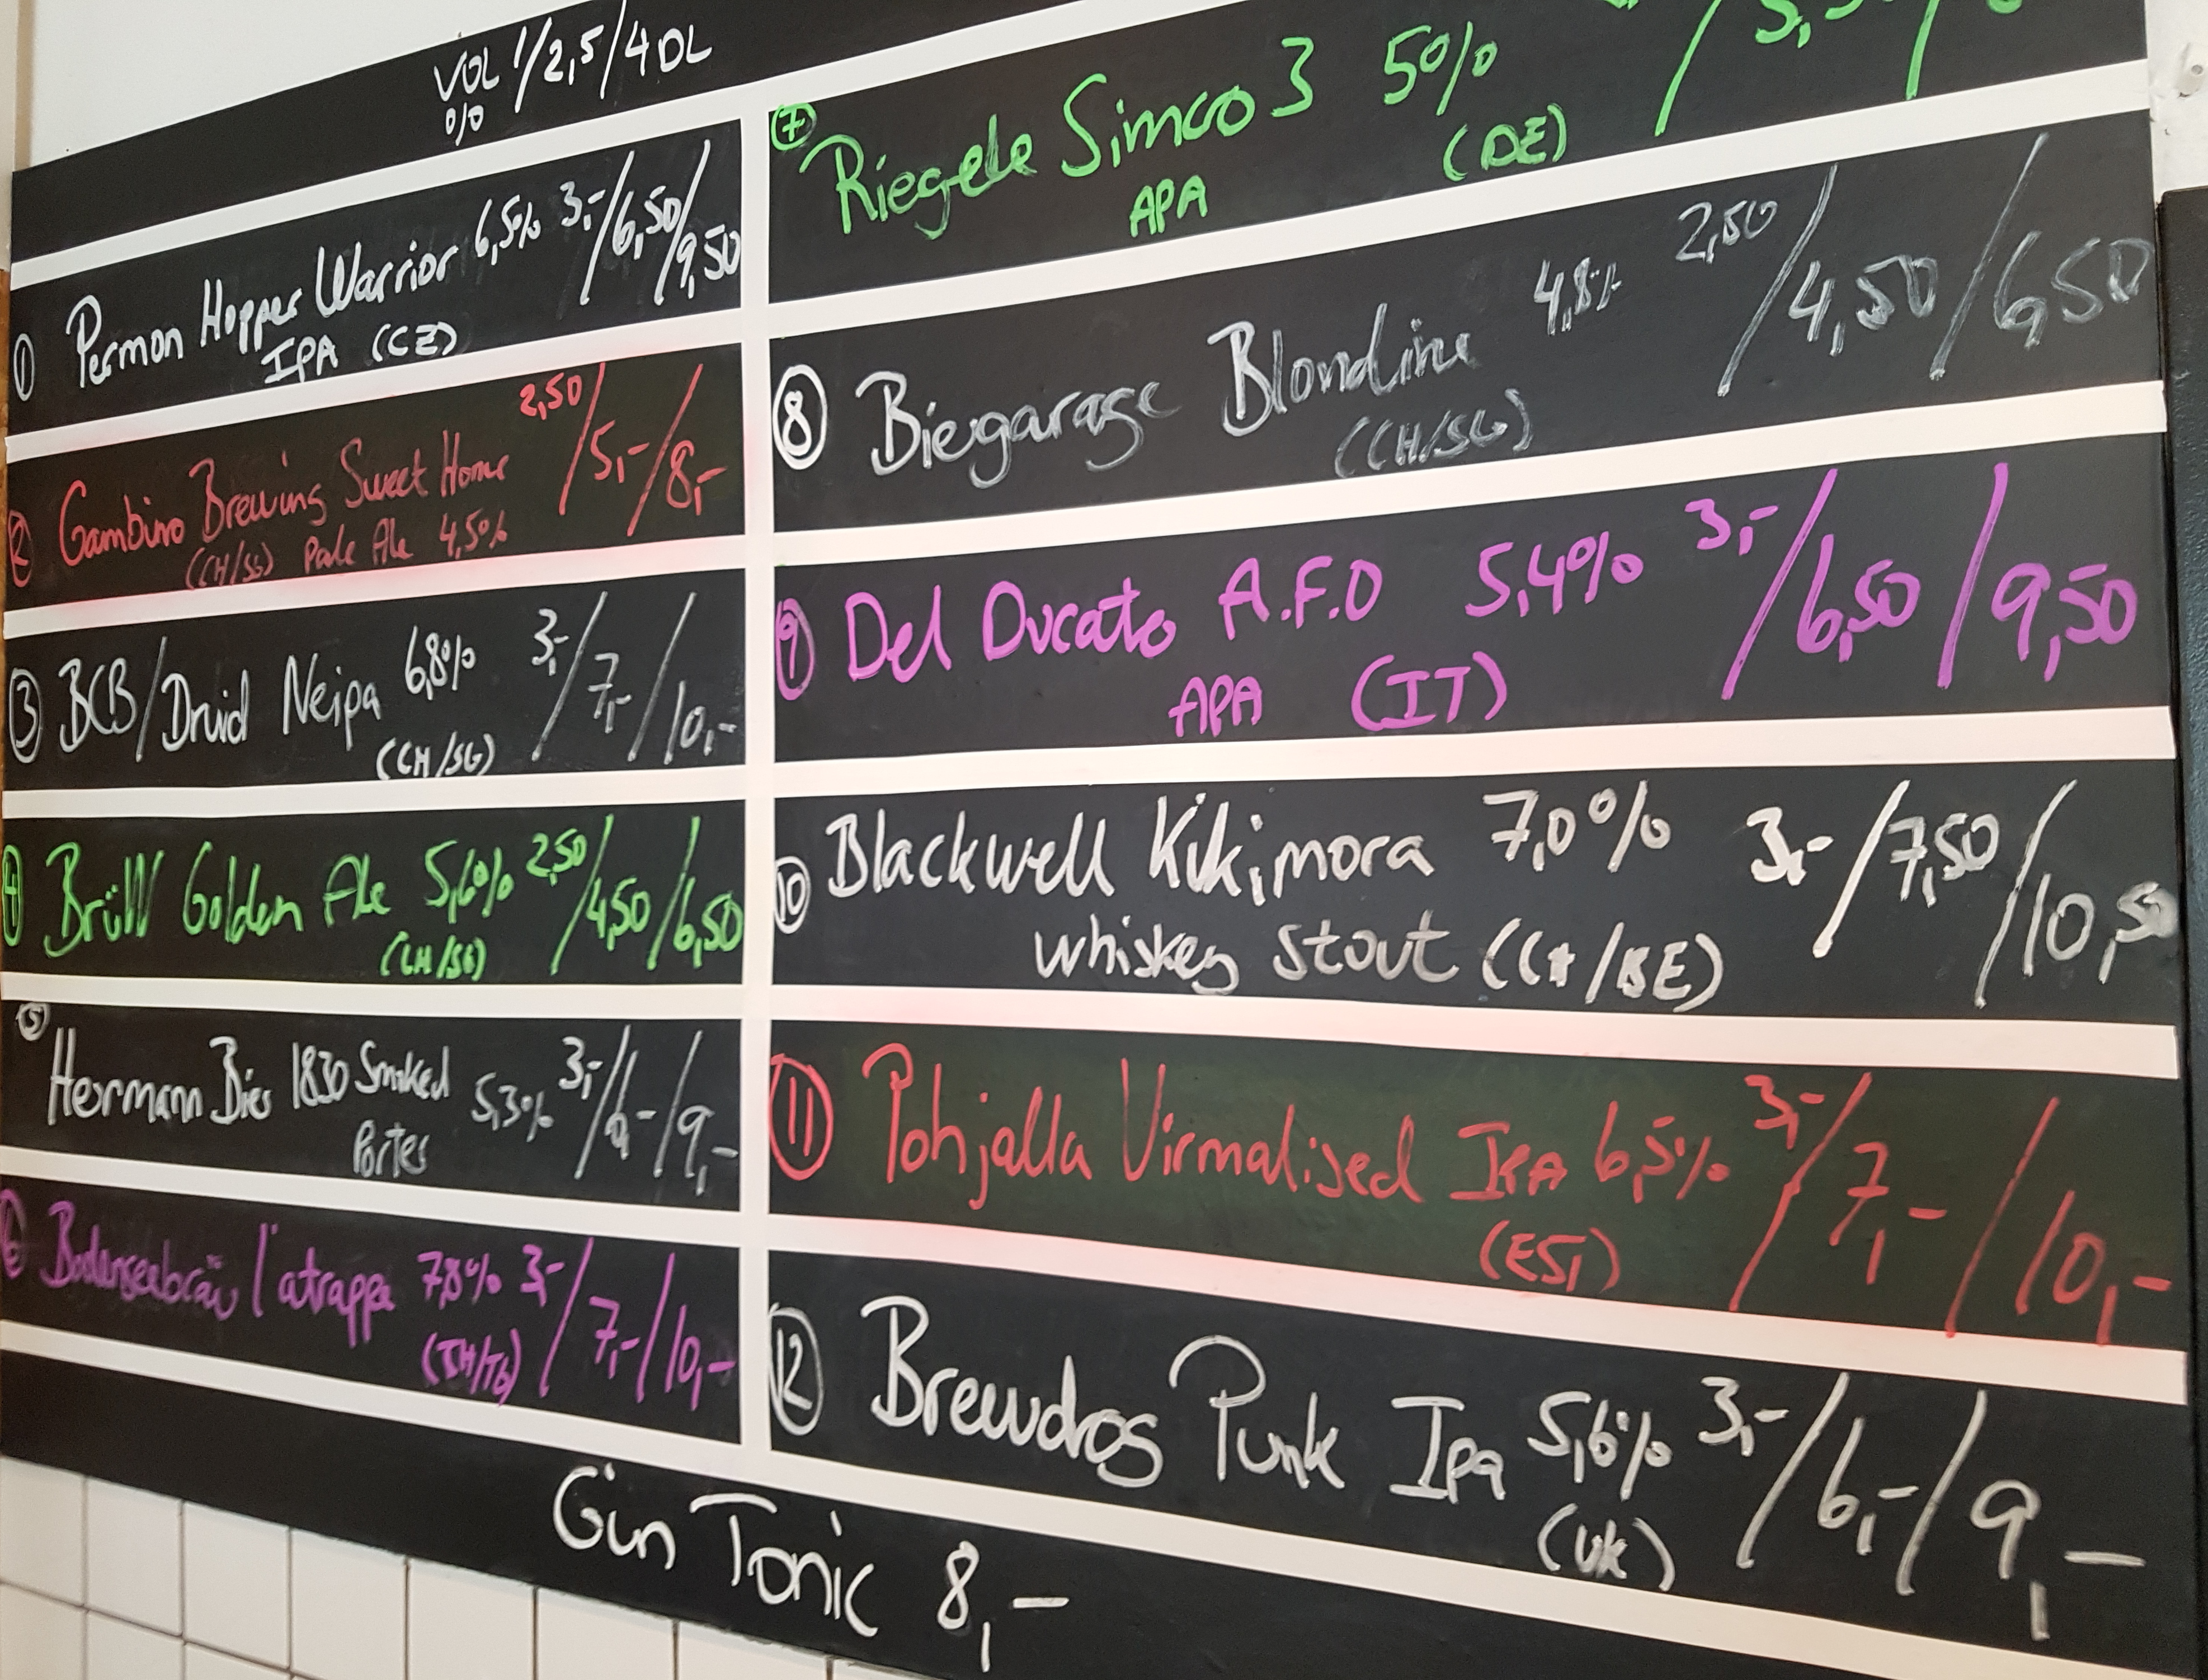 VOL 1/2,5/4DL
%
① Permon Hopper Warrior 6,5% 3,-/6,50/9,50
IPA (CZ)
② Gambino Brewing Sweet Home 2,50/5,-/8,-
(CH/SG) Pale Ale 4,5%
③ BCB/Druid Neipa 6,8% 3,-/7,-/10,-
(CH/SG)
④ Brüll Golden Ale 5,6% 2,50/4,50/6,50
(CH/SG)
⑤
Hermann Bier 1830 Smoked 5,3% 3,-/6,-/9,-
Porter
⑥ Bodenseebräu l'atrappe 7,8% 3,-/7,-/10,-
(CH/TG)
⑦ Riegele Simco 3 5%
APA (DE)
⑧ Biergarage Blondine 4,8% 2,50/4,50/6,50
(CH/SG)
⑨ Del Ducato A.F.O 5,4% 3,-/6,50/9,50
APA (IT)
⑩ Blackwell Kikimora 7,0% 3,-/7,50/10,50
whiskey stout (CH/BE)
⑪ Pohjalla Virmalised IPA 6,5% 3,-/7,-/10,-
(EST)
⑫ Brewdog Punk Ipa 5,6% 3,-/6,-/9,-
(UK)
Gin Tonic 8,-